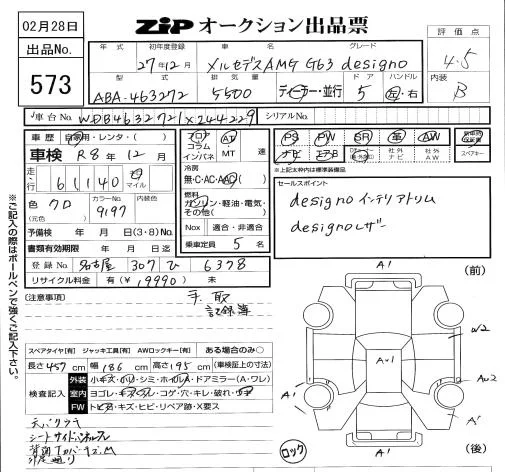 02月28日
ZIP オークション出品票
出品No.
573
年式 初年度登録 車名 グレード
27年12月 メルセデスAMG G63 designo
型式 排気量 ドア ハンドル
ABA-463272 5500 ディーラー・並行 5 左・右
評価点
4.5
内装
B
車台No. WDB4632721X244229
シリアルNo.
車歴 自家用・レンタ・( )
車検 R8年12月
走行 61140 キロ マイル
色 クロ カラーNo. 9197 内装色
(元色)
予備検 年 月 日(3・8)No.
書類有効期限 年 月 日迄
登録No. 名古屋 307 ひ 6378
リサイクル料金 有(¥19990) 未
フロア
コラム
インパネ
AT
MT 速
冷房
無・C・AC・AAC
燃料
ガソリン・軽油・電気・
その他( )
Nox 適合・非適合
乗車定員 5 名
PS PW SR 革 AW
ナビ エアB 社外ナビ 社外AW スペアキー
※上記太枠内は標準装備品
セールスポイント
designo インテリアトリム
designoレザー
(注意事項)
手 取
記録簿
※ご記入の際はボールペンで強くご記入下さい。
スペアタイヤ【有】 ジャッキ工具【有】 AWロックキー【有】 ある場合のみ○
長さ 457 cm 幅 186 cm 高さ 195 cm (車検証上の寸法)
検査記入
外装 小キズ・凹・シミ・ホール・ドアミラー(A・ワレ)
室内 ヨゴレ・キズ・スレ・コゲ・穴・キレ・破れ・
FW トビ石・キズ・ヒビ・リペア跡・X要ス
シートサイド
(前)
A1
W2
A1
AU1
AU2
A1
A1
(後)
ロック